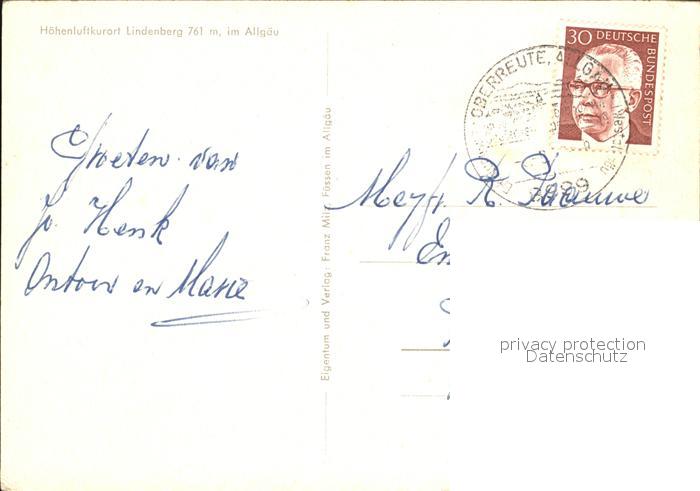 Höhenluftkurort Lindenberg 761 m, im Allgäu
Groeten van
Jo Henk
Antoon en Marie
Eigentum und Verlag: Franz Milz, Füssen im Allgäu
30 DEUTSCHE BUNDESPOST
OBERREUTE, ALLGÄU
8999
Mejfr. R.
privacy protection
Datenschutz